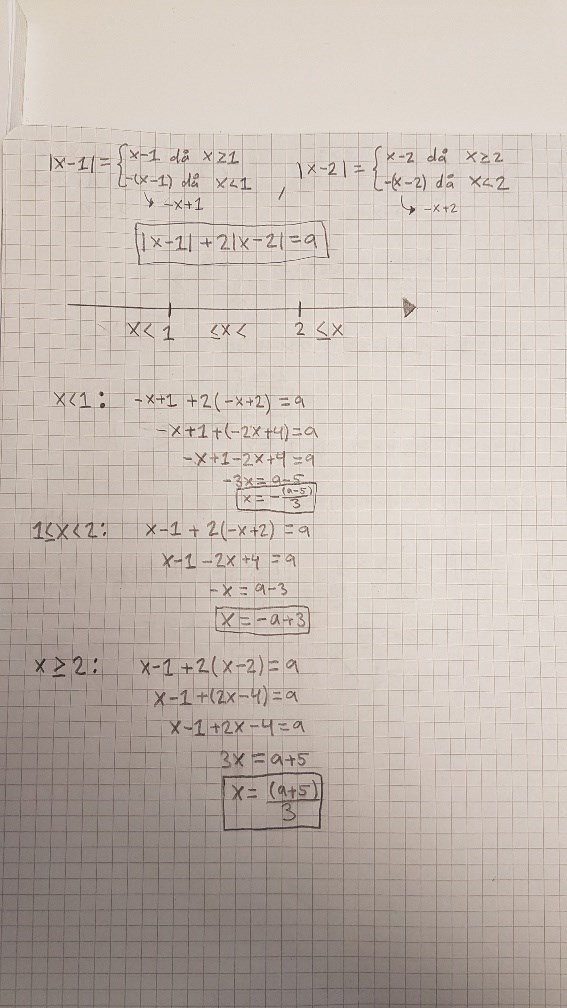 |x-1| = { x-1 då x≥1
-(x-1) då x<1
↳ -x+1
, |x-2| = { x-2 då x≥2
-(x-2) då x<2
↳ -x+2
|x-1| + 2|x-2| = a
x< 1 ≤x< 2 ≤x
x<1: -x+1 +2(-x+2) = a
-x+1+(-2x+4)=a
-x+1-2x+4=a
-3x=a-5
x=-(a-5)/3
1≤x<2: x-1 + 2(-x+2) = a
x-1-2x+4 = a
-x = a-3
x = -a+3
x≥2: x-1+2(x-2)=a
x-1+(2x-4)=a
x-1+2x-4=a
3x=a+5
x=(a+5)/3